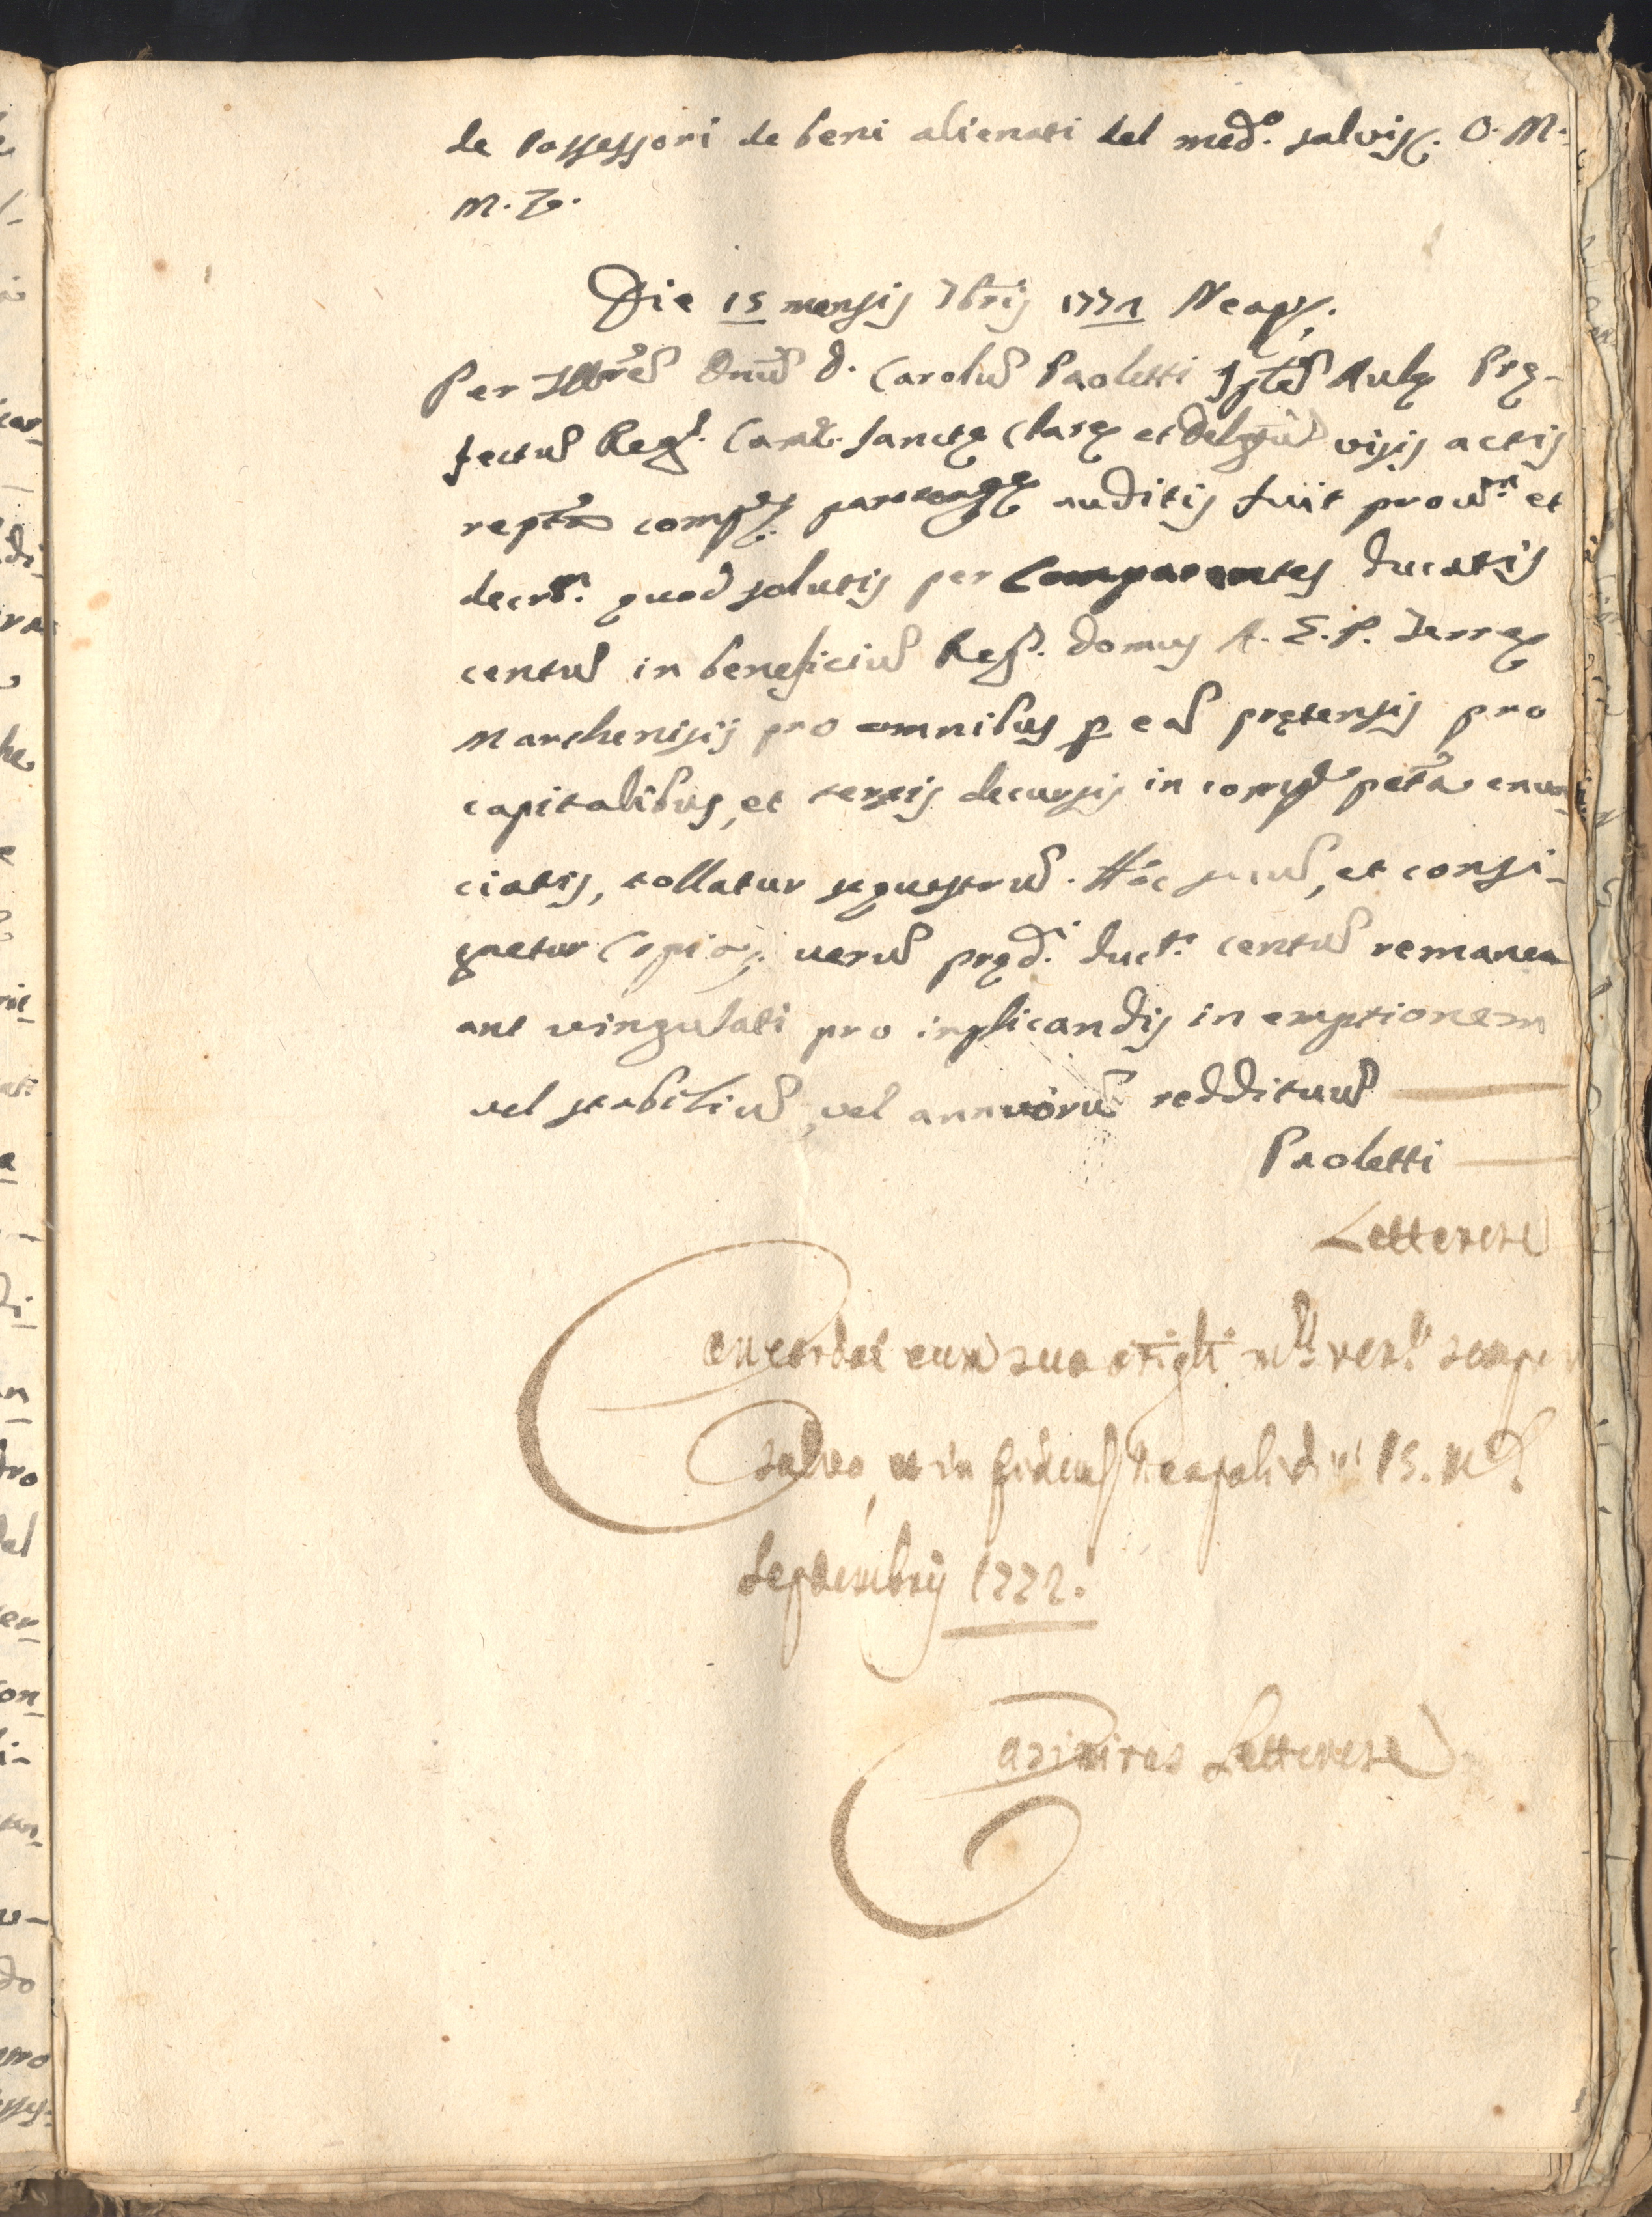 de Possessori de beni alienati del med.º salvis. O. M.
M. Z.
Die 15 mensis 7bris 1772 Neap.
Per Illrẽ Dnũ D. Carolũ Paoletti Aulę Prę-
fectũ Reg. Cam. Sanctę Clarę et visis actis
comp. auditis fuit prov.m et
decr.m quod solutis per Comparentes ducatis
centũ in beneficiũ Reg. domus A. G. P. Terrę
Marchenisij pro omnibus p eã prętensis pro
capitalibus, et tertiis decursis in comp. petã enun-
ciatis, tollatur sequestrũ. Hoc suũ, et consi-
gnetur copia; verũ pręd.i duct.i centũ remanea
ant vingulati pro inplicandis in emptionem
vel stabiliũ, vel annuorũ reddituũ
Paoletti
Letterese
Concordat cum suo origli m.ri ver.i semper
salva, et in fidem Neapoli die 15. m.
Septembrij 1772.
Letterese